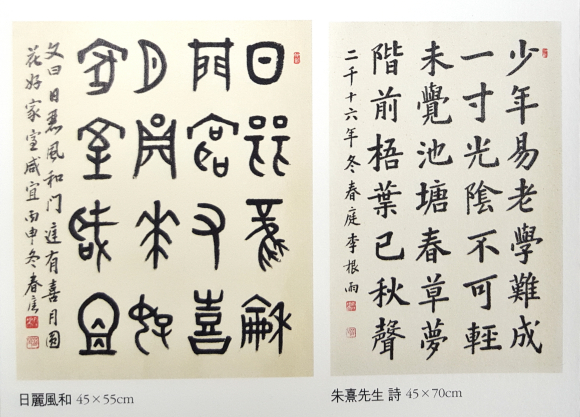 日丽風龢
門庭又喜
月員花好
家室咸宜
文曰日丽風和门庭有喜月圆
花好家室咸宜丙申冬春庭
日麗風和 45×55cm
少年易老學難成
一寸光陰不可輕
未覺池塘春草夢
階前梧葉已秋聲
二千十六年冬春庭李根雨
朱熹先生 詩 45×70cm